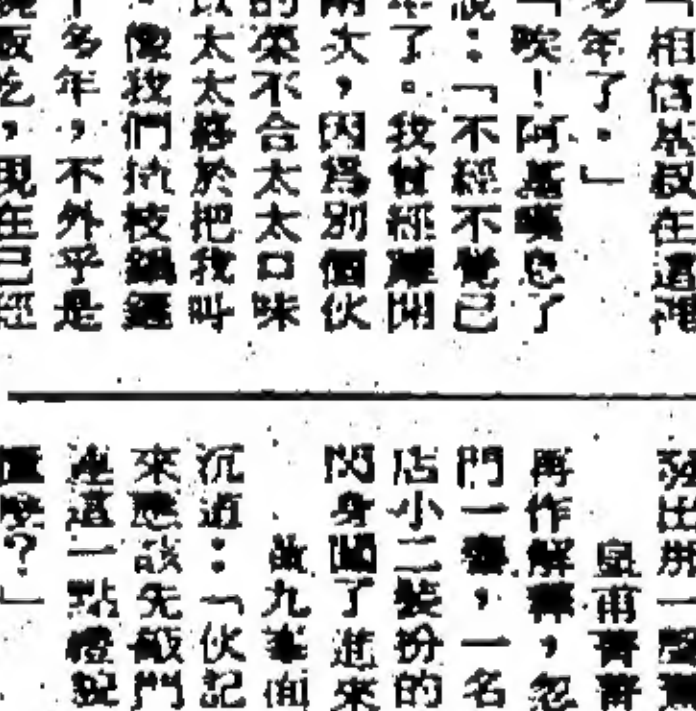 「相信基叔在這裡
多年了。」
「唉！阿基嘆息了
說：「不經不覺已
年了。我曾經離開
兩次，因爲別個伙
的菜不合太太口味
以太太終於把我叫
。像我們抗枝鍋鏟
十多年，不外乎是
燒飯吃，現在已經
發出吼一聲驚
皇甫菁菁
再作解釋，忽
門一響，一名
店小二裝扮的
閃身闖了進來
故九峯面
沉道：「伙記
來應該先敲門
連這一點禮貌
懂麼？」